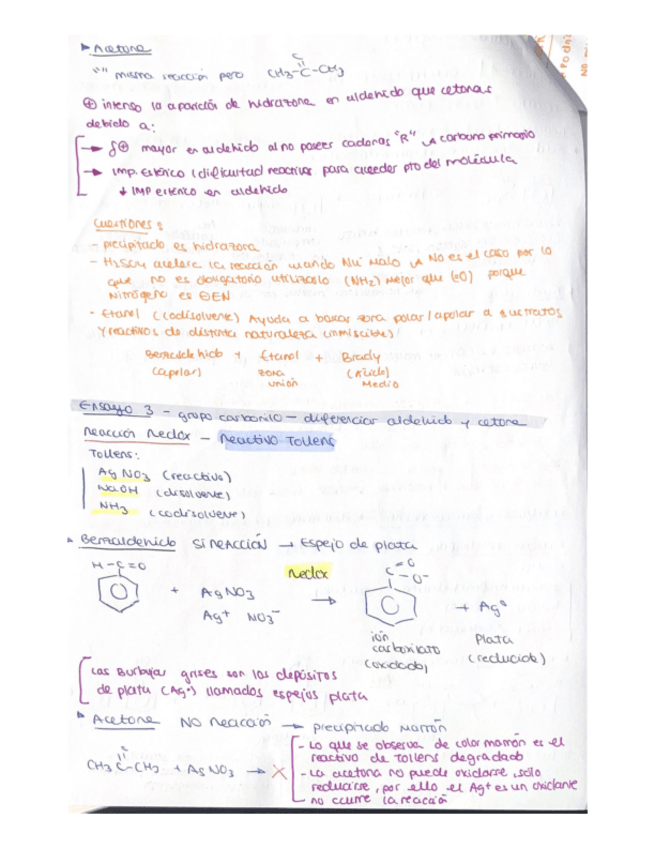 Acetona
"" misma reacción pero CH3-C-CH3
⊕ intenso la aparición de hidrazona en aldehido que cetonas
debido a:
→ δ⊕ mayor en aldehido al no poseer cadenas "R" carbono primario
→ imp. estérico (dificultad reactivos para acceder pto del molécula
↓ IMP estérico en aldehido
Cuestiones:
- precipitado es hidrazona
- H2SO4 acelera la reacción usando Nu⁻ malo NO es el caso por lo
que no es obligatorio utilizarlo (NH2) mejor que (eO) porque
Nitrógeno es ⊖EN
- Etanol (codisolvente) Ayuda a bajar zona polar/apolar a sustratos
y reactivos de distinta naturaleza (inmiscible)
Benzaldehido + Etanol + Brady
(apolar) zona (Ácido)
unión Medio
Ensayo 3 - grupo carbonilo - diferenciar aldehido y cetona
Reacción Redox - Reactivo Tollens
Tollens:
AgNO3 (reactivo)
NaOH (disolvente)
NH3 (codisolvente)
Benzaldehido SI REACCIÓN → Espejo de plata
H-C=O Redox C=O
O⁻
+ AgNO3 → + Ag°
Ag+ NO3⁻
ión Plata
carboxilato (reducida)
(oxidado)
Las Burbujas grises son los depósitos
de plata (Ag°) llamados espejos plata
Acetona NO Reacción → precipitado marrón
- Lo que se observa de color marrón es el
reactivo de Tollens degradado
CH3-C-CH3 + AgNO3 → X
- La acetona no puede oxidarse, sólo
reducirse, por ello el Ag+ es un oxidante
no ocurre la reacción